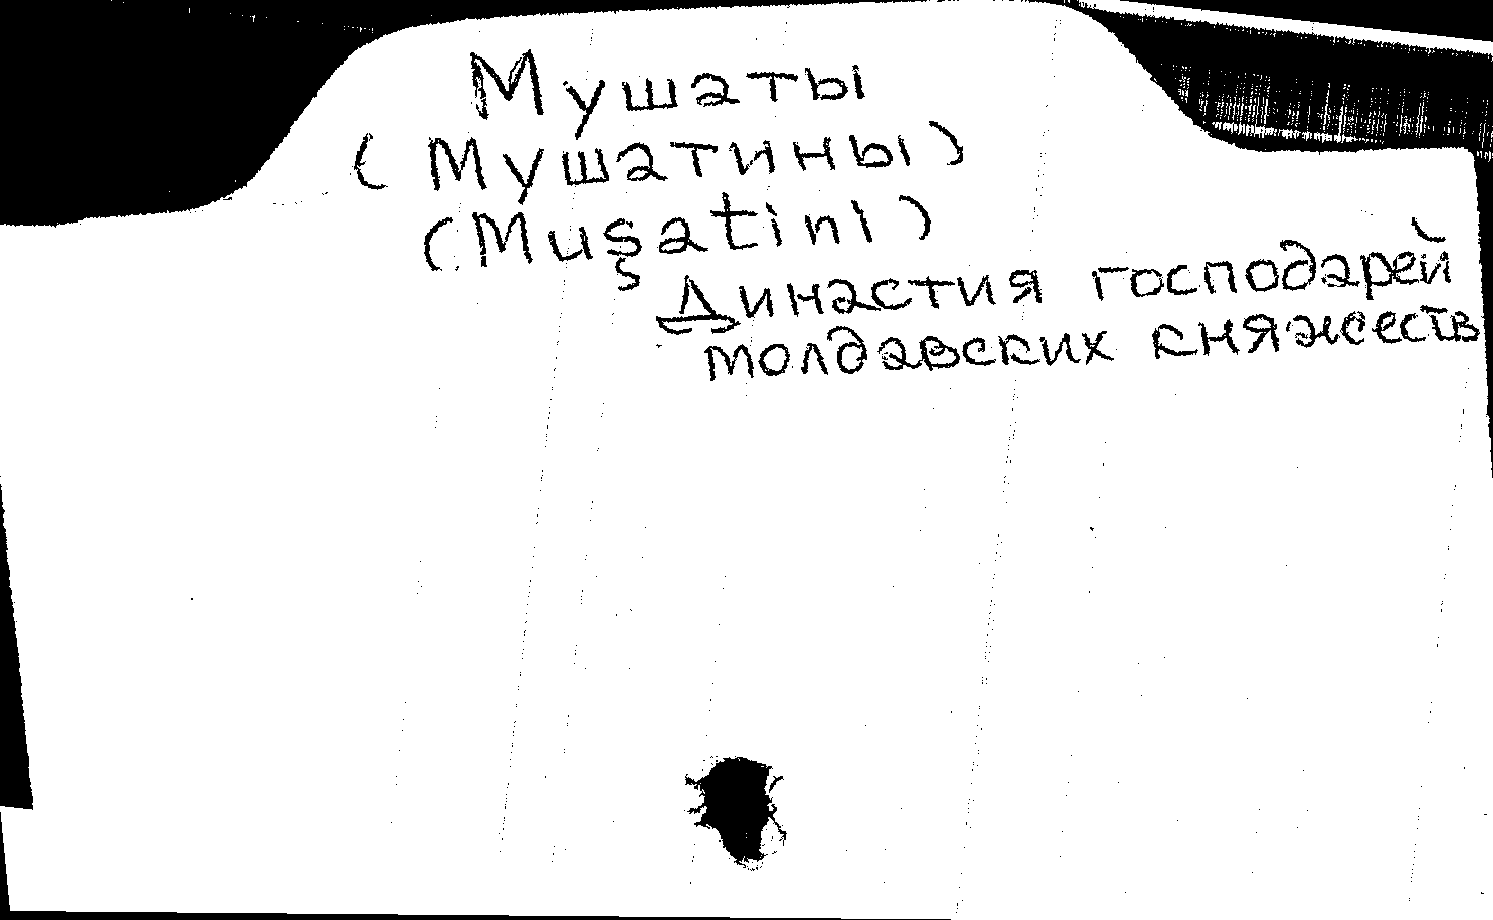 Мушаты
(Мушатины)
(Muşatini)
Династия господарей
молдавских княжеств